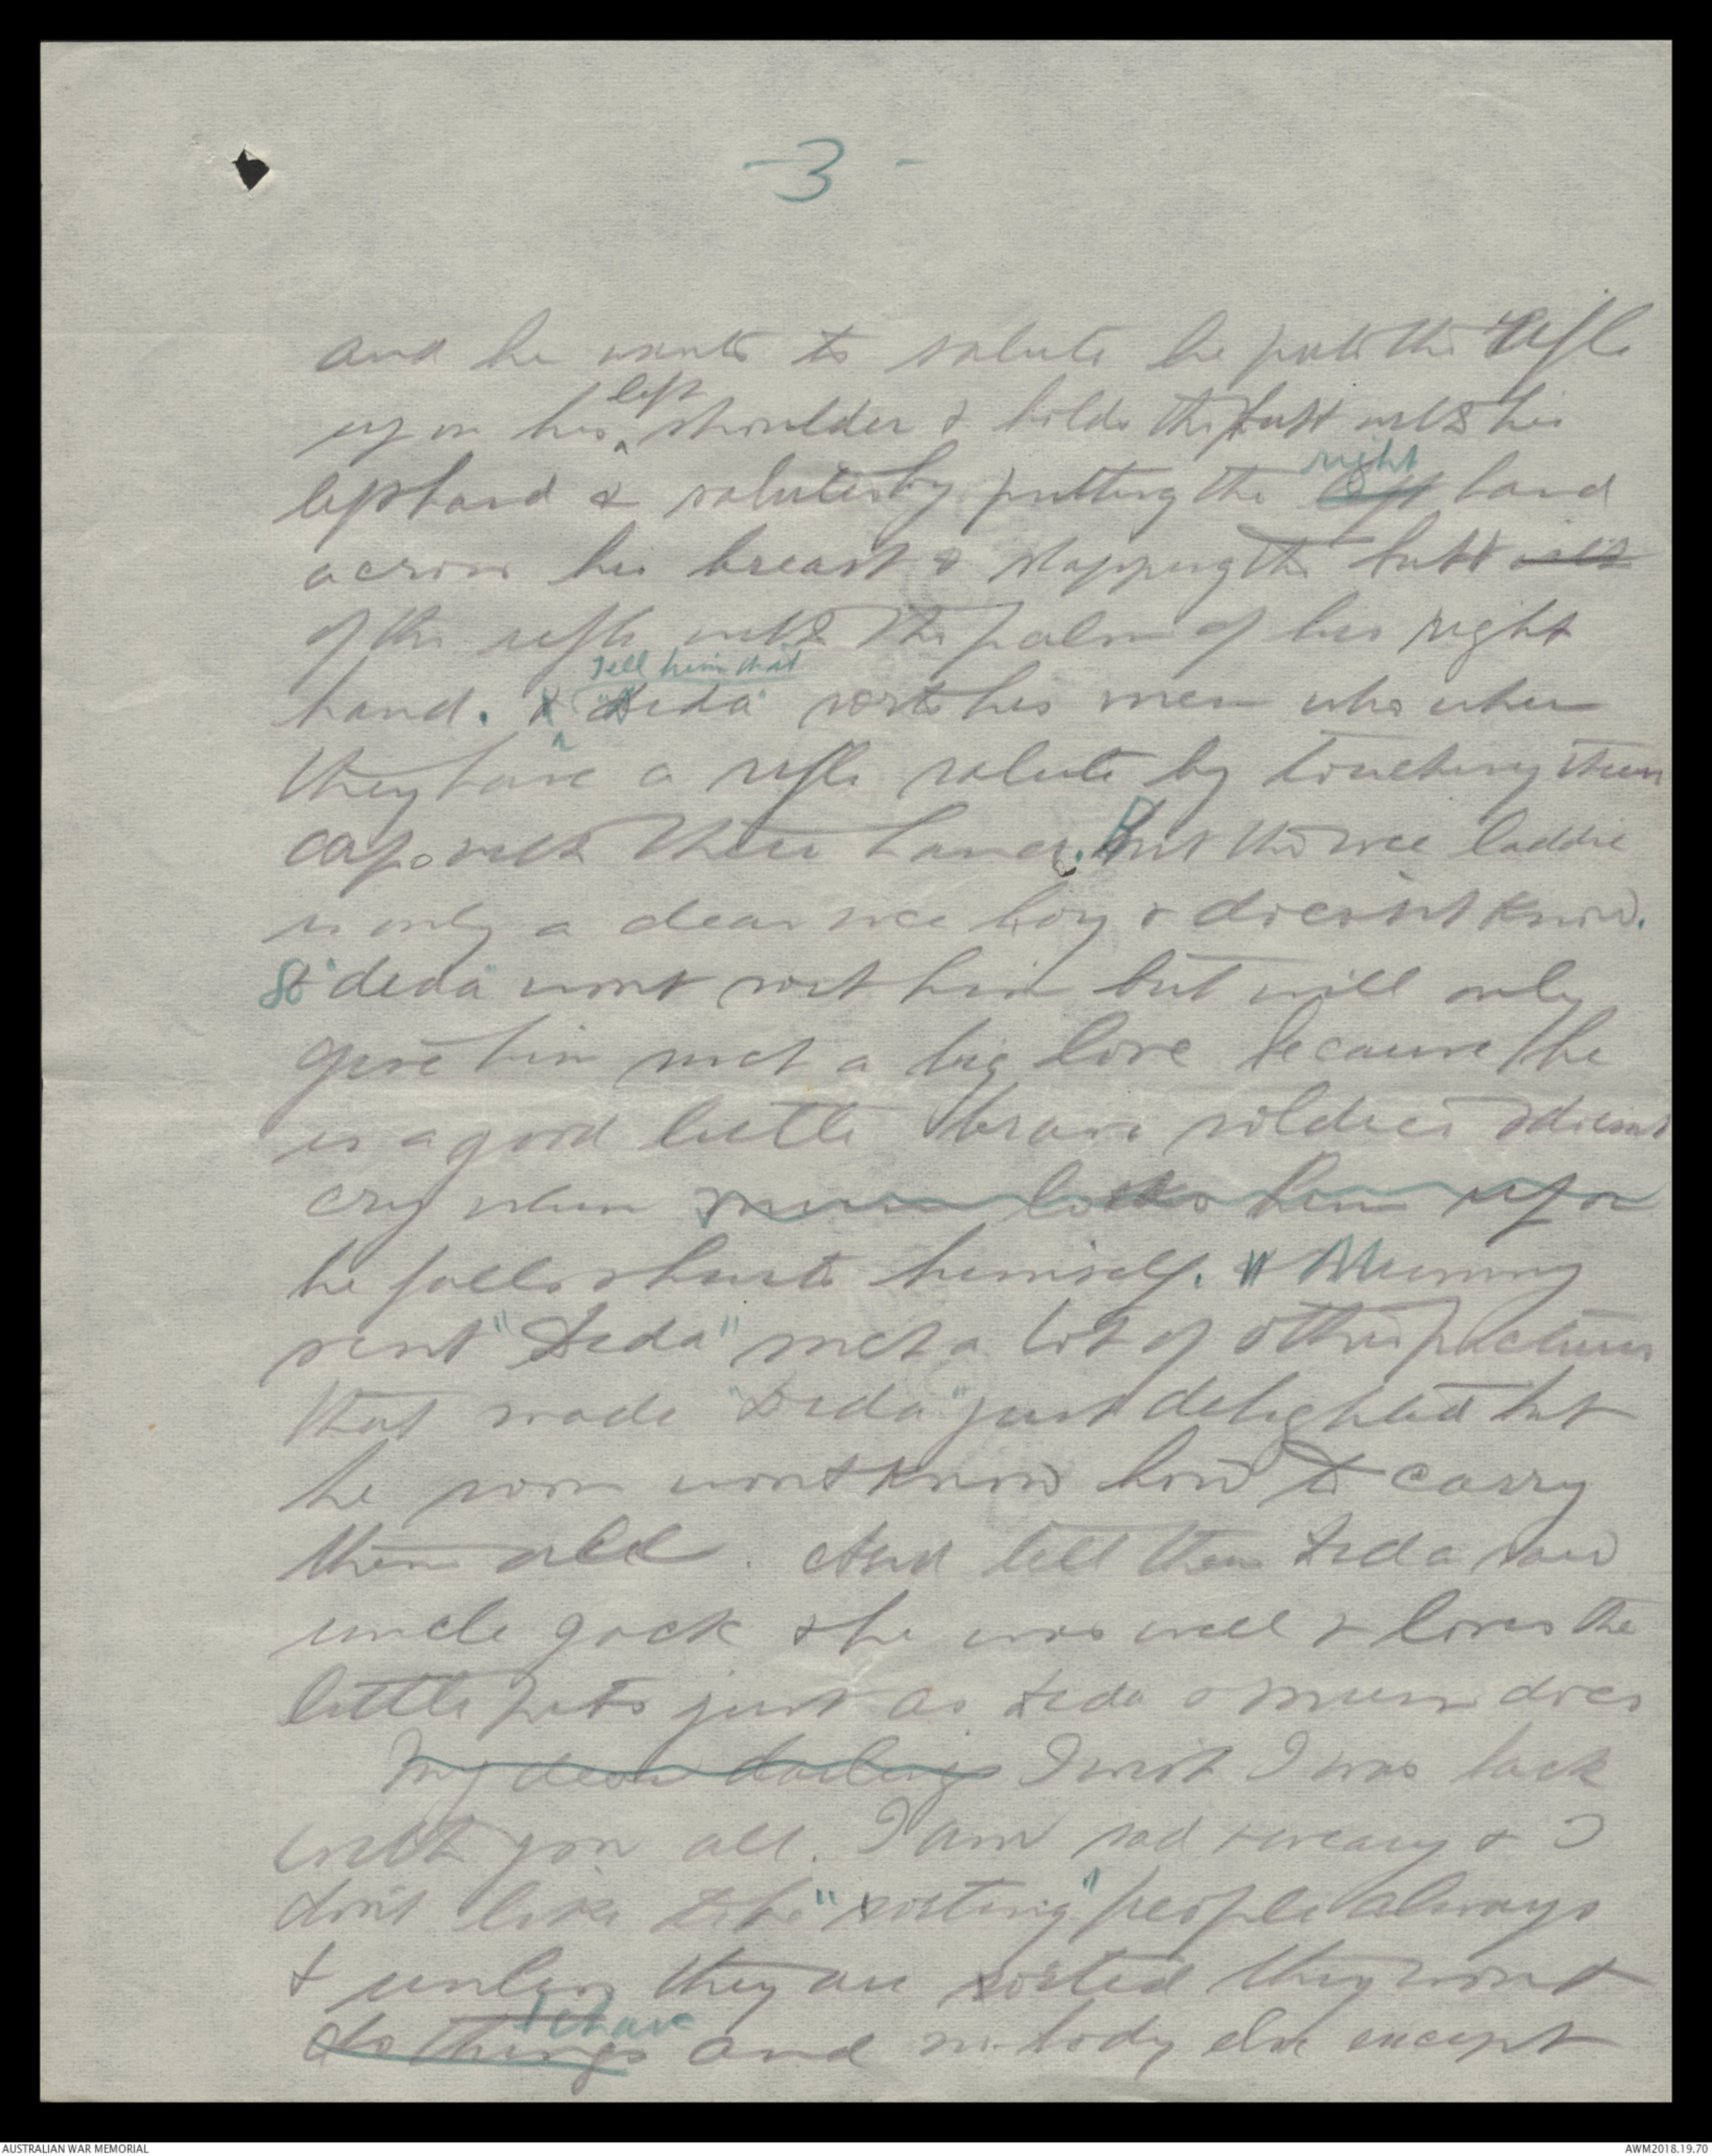 - 3 -
and he wants to salute he puts the rifle
up on his left shoulder & holds the butt with his
left hand & salutes by putting the right left hand
across his breast & slapping the butt with
of the rifle with the palm of his right
hand. & Tell him that "Deda" rosts his men who when
they have a rifle salute by touching their
caps with their hand. But the wee laddie
is only a dear wee boy & doesn't know.
So "deda" wont rost him but will only
give him just a big love because he
is a good little brave soldier & doesnt
cry when mum locks him up or
he falls & hurts himself. Mummy
sent "Deda" such a lot of other pictures
that made "Deda" just delighted but
he soon wont know how to carry
them all. And tell them Deda saw
uncle Jack & he was well & loves the
little pets just as Deda & mum does
My dear darlings I wish I was back
with you all. I am sad & weary & I
don't like to be "rosting" people always
& unless they are rosted they wont
do things behave and nobody else except
AUSTRALIAN WAR MEMORIAL
AWM2018.19.70